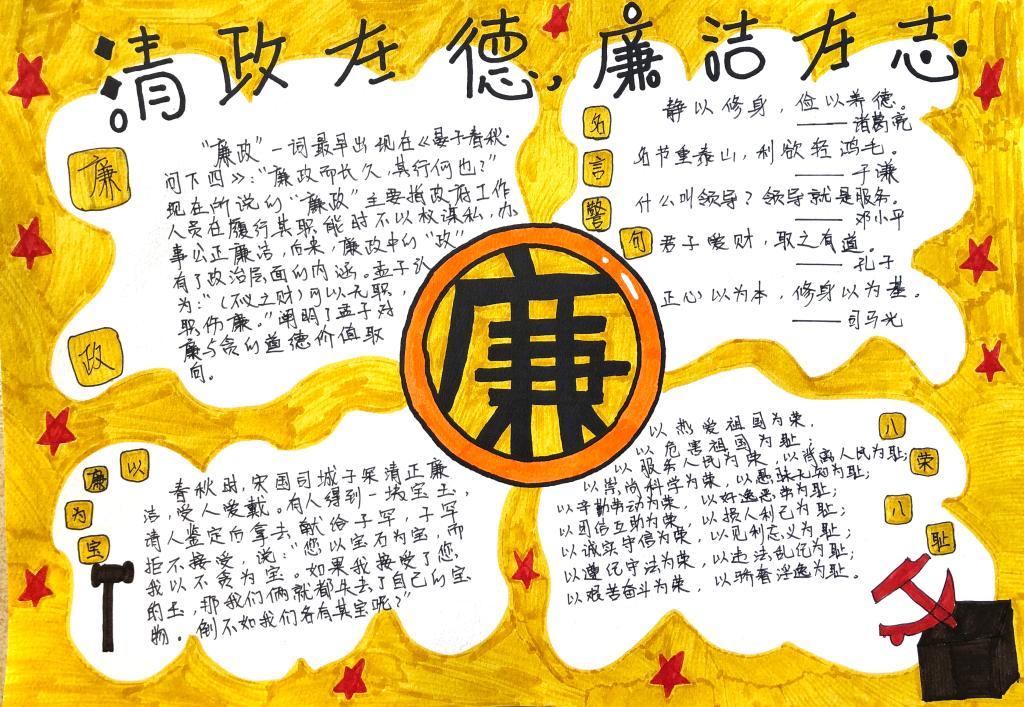 清政在德,廉洁在志
廉
政
"廉政"一词最早出现在《晏子春秋·
问下四》:"廉政而长久,其行何也?"
现在所说的"廉政"主要指政府工作
人员在履行其职能时不以权谋私,办
事公正廉洁,后来,廉政中的"政"
有了政治层面的内涵。孟子认
为:"(不义之财)可以无职,
职伤廉。"阐明了孟子对
廉与贪的道德价值取
向。
名
言
警
句
静以修身,俭以养德。
——诸葛亮
名节重泰山,利欲轻鸿毛。
——于谦
什么叫领导?领导就是服务。
——邓小平
君子爱财,取之有道。
——孔子
正心以为本,修身以为基。
——司马光
廉
以
廉
为
宝
春秋时,宋国司城子罕清正廉
洁,受人爱戴。有人得到一块宝玉,
请人鉴定后拿去献给子罕,子罕
拒不接受,说:"您以宝石为宝,而
我以不贪为宝。如果我接受了您
的玉,那我们俩就都失去了自己的宝
物。倒不如我们各有其宝呢?"
八
荣
八
耻
以热爱祖国为荣,
以危害祖国为耻;
以服务人民为荣,以背离人民为耻;
以崇尚科学为荣,以愚昧无知为耻;
以辛勤劳动为荣,以好逸恶劳为耻;
以团结互助为荣,以损人利己为耻;
以诚实守信为荣,以见利忘义为耻;
以遵纪守法为荣,以违法乱纪为耻;
以艰苦奋斗为荣,以骄奢淫逸为耻。